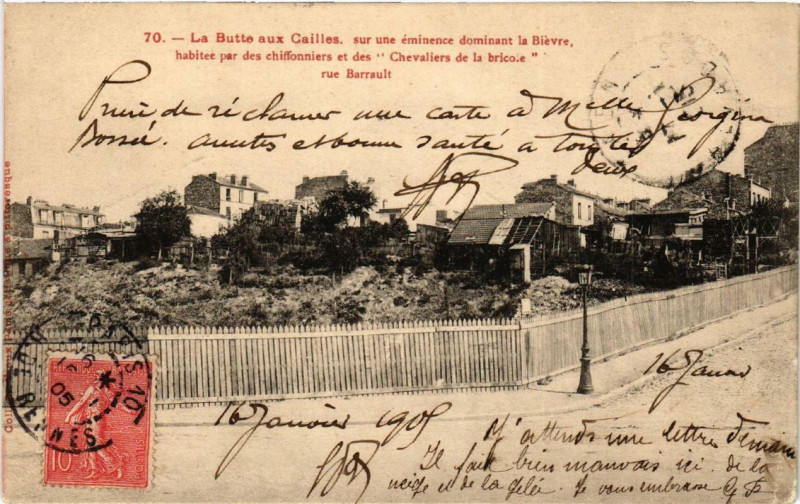 70. — La Butte aux Cailles. sur une éminence dominant la Bièvre,
habitée par des chiffonniers et des "Chevaliers de la bricole"
rue Barrault
Prière de réclamer une carte à Melle Georgina
amitiés et bonne santé à toutes
deux
16 Janvier
16 Janvier 1905
J'attends une lettre demain
Il fait bien mauvais ici. de la
neige et de la gelée. Je vous embrasse
PARIS
RENNES
05
10